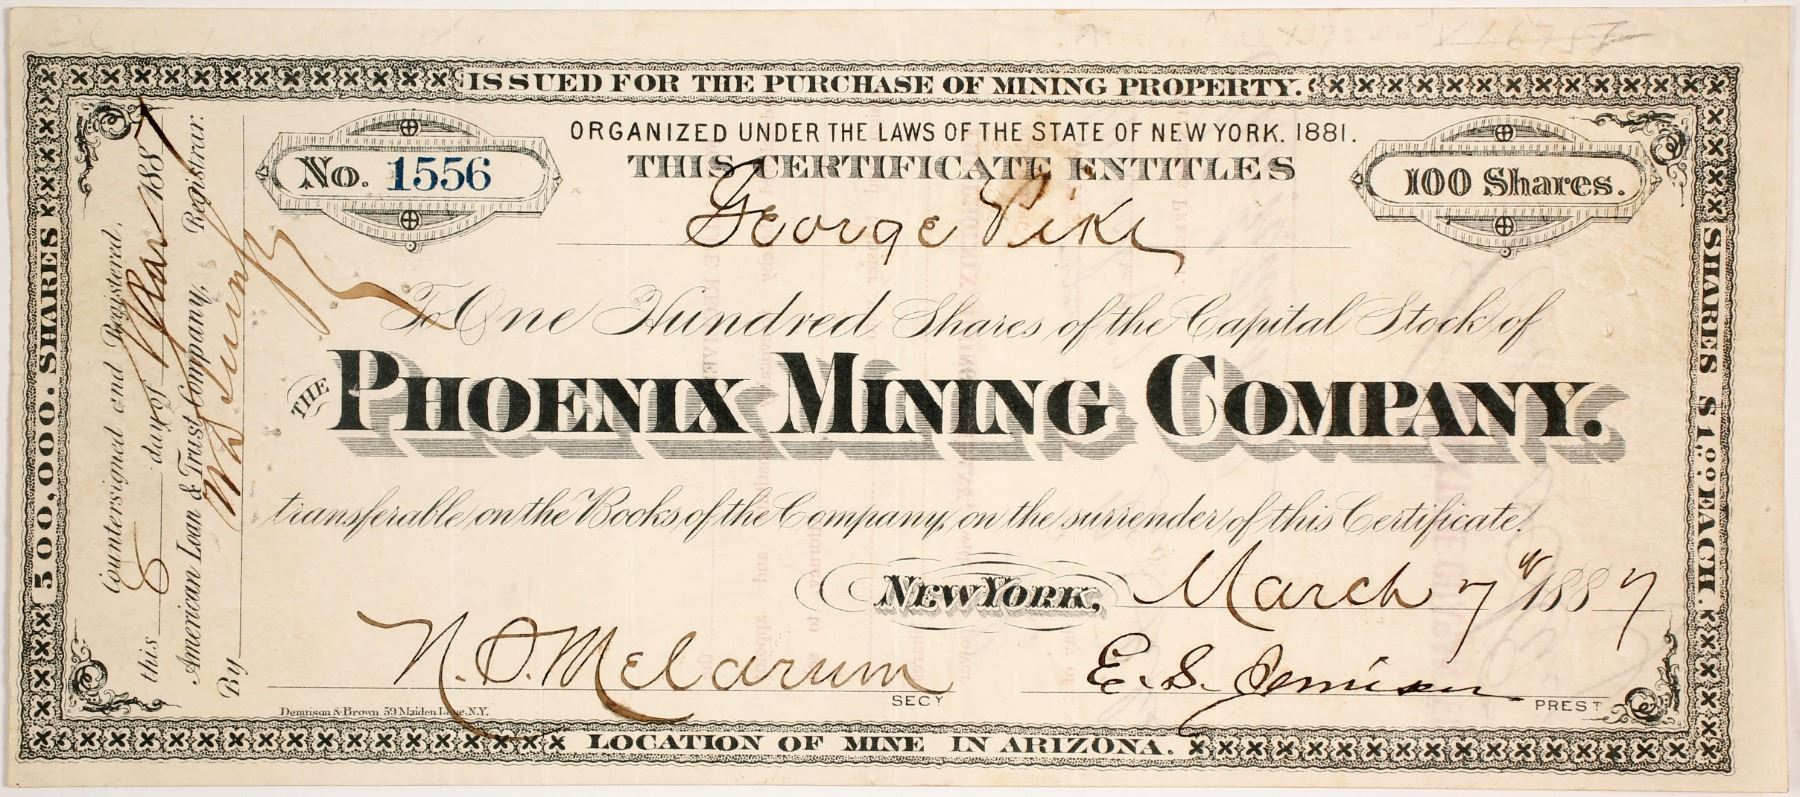 ISSUED FOR THE PURCHASE OF MINING PROPERTY.
ORGANIZED UNDER THE LAWS OF THE STATE OF NEW YORK. 1881.
No. 1556
THIS CERTIFICATE ENTITLES
100 Shares.
George Pike
To One Hundred Shares of the Capital Stock of
THE PHOENIX MINING COMPANY.
transferable on the Books of the Company, on the surrender of this Certificate.
NEW YORK, March 7th 1887
N. S. McLarum SECY
E. S. Jennison PREST
Dennison & Brown 59 Maiden Lane, N.Y.
LOCATION OF MINE IN ARIZONA.
500,000. SHARES
SHARES $1.00 EACH.
Countersigned and Registered.
this 8 day of Mar 1887
American Loan & Trust Company, Registrar.
By